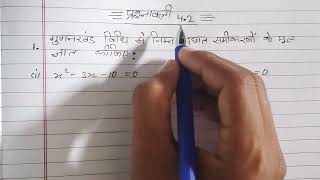 प्रश्नावली 4.2
1. गुणनखंड विधि से निम्न समीकरणों के मूल
ज्ञात कीजिए:
(i) x² - 3x - 10 = 0 = 0